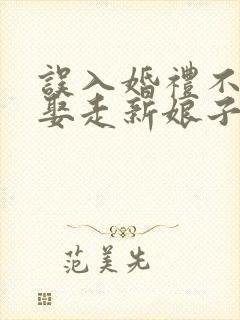 誤入婚禮不
娶走新娘子
范美先